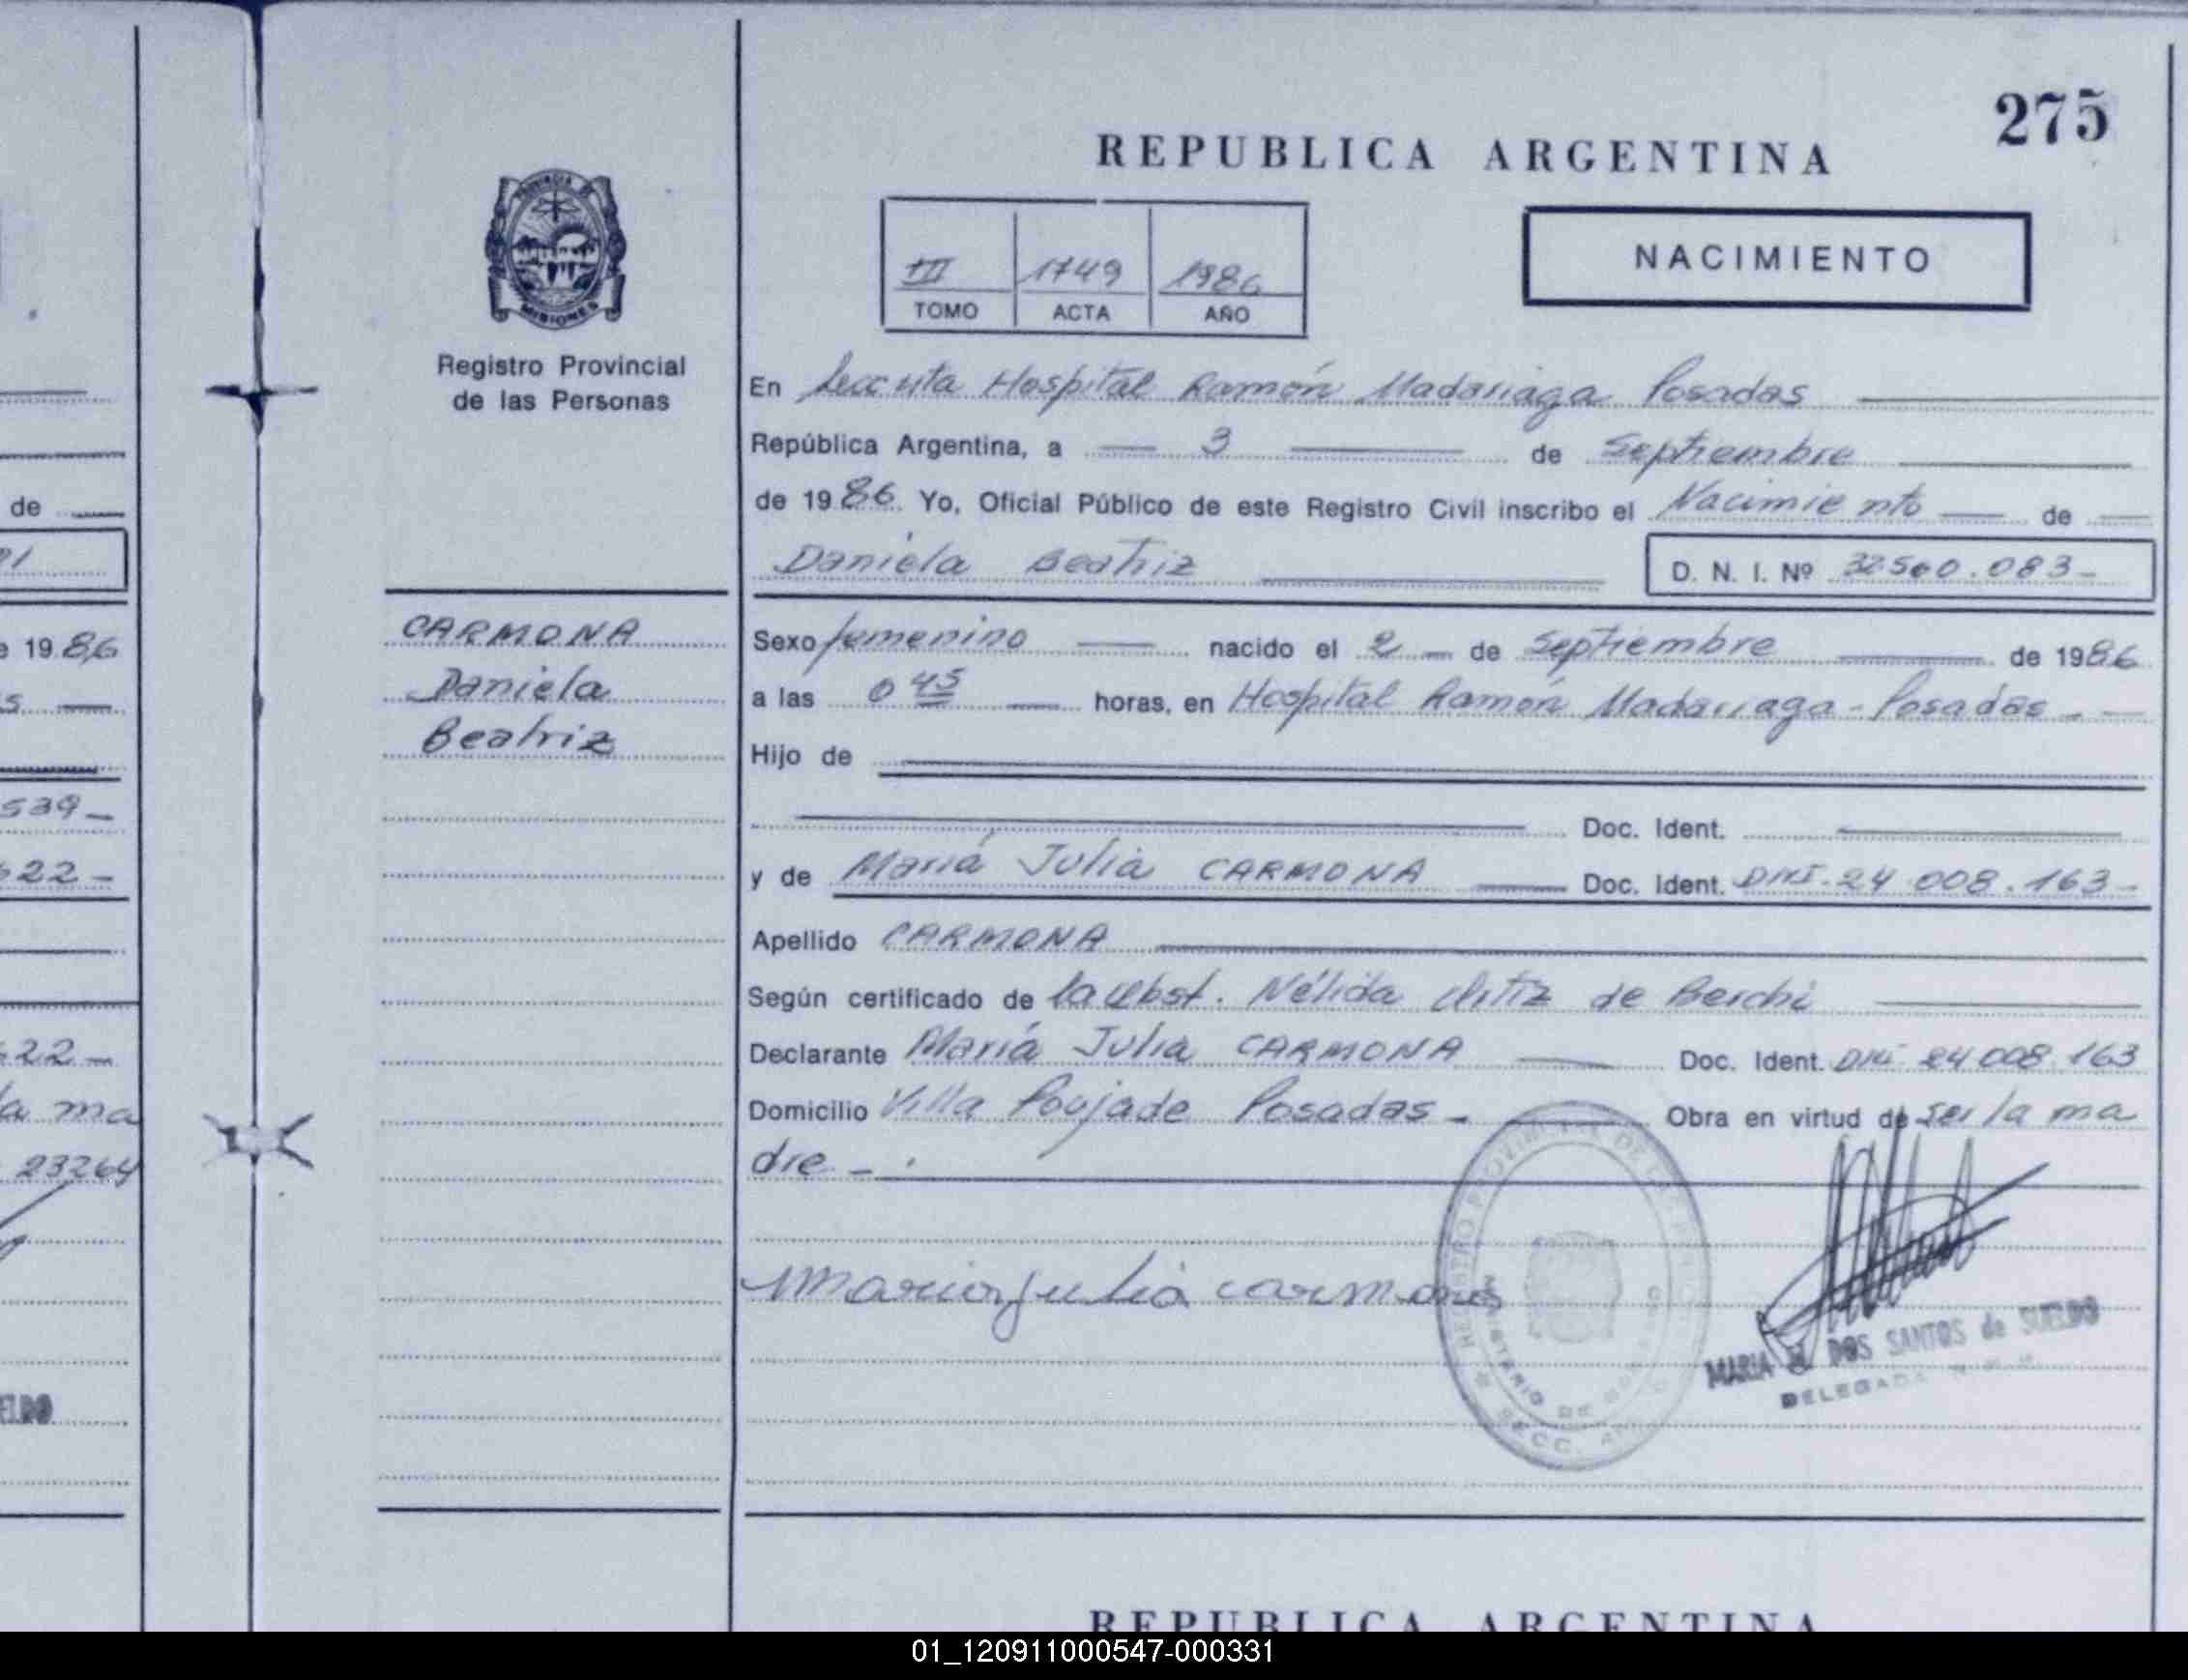 275
REPUBLICA ARGENTINA
PROVINCIA DE
MISIONES
Registro Provincial
de las Personas
III 1749 1986
TOMO ACTA AÑO
NACIMIENTO
En Hospital Ramón Madariaga Posadas
República Argentina, a 3 de Septiembre
de 1986 Yo, Oficial Público de este Registro Civil inscribo el Nacimiento de
Daniela Beatriz D. N. I. Nº 32560.083-
CARMONA
Daniela
Beatriz
Sexo femenino nacido el 2 de Septiembre de 1986
a las 0 45 horas, en Hospital Ramón Madariaga - Posadas
Hijo de
Doc. Ident.
y de María Julia CARMONA Doc. Ident. DNI. 24 008.163-
Apellido CARMONA
Según certificado de la Obst. Nélida Ortiz de Berchi
Declarante María Julia CARMONA Doc. Ident. DNI 24 008 163
Domicilio Villa Poujade Posadas - Obra en virtud de ser la ma
dre - .
maria julia carmona
REGISTRO PROVINCIAL DE LAS
MINISTERIO DE
SECC.
MARIA DOS SANTOS de SUELDO
DELEGADA
de
91
e 1986
s
539-
622-
622-
la ma
23264
ELDO
REPUBLICA ARGENTINA
01_120911000547-000331